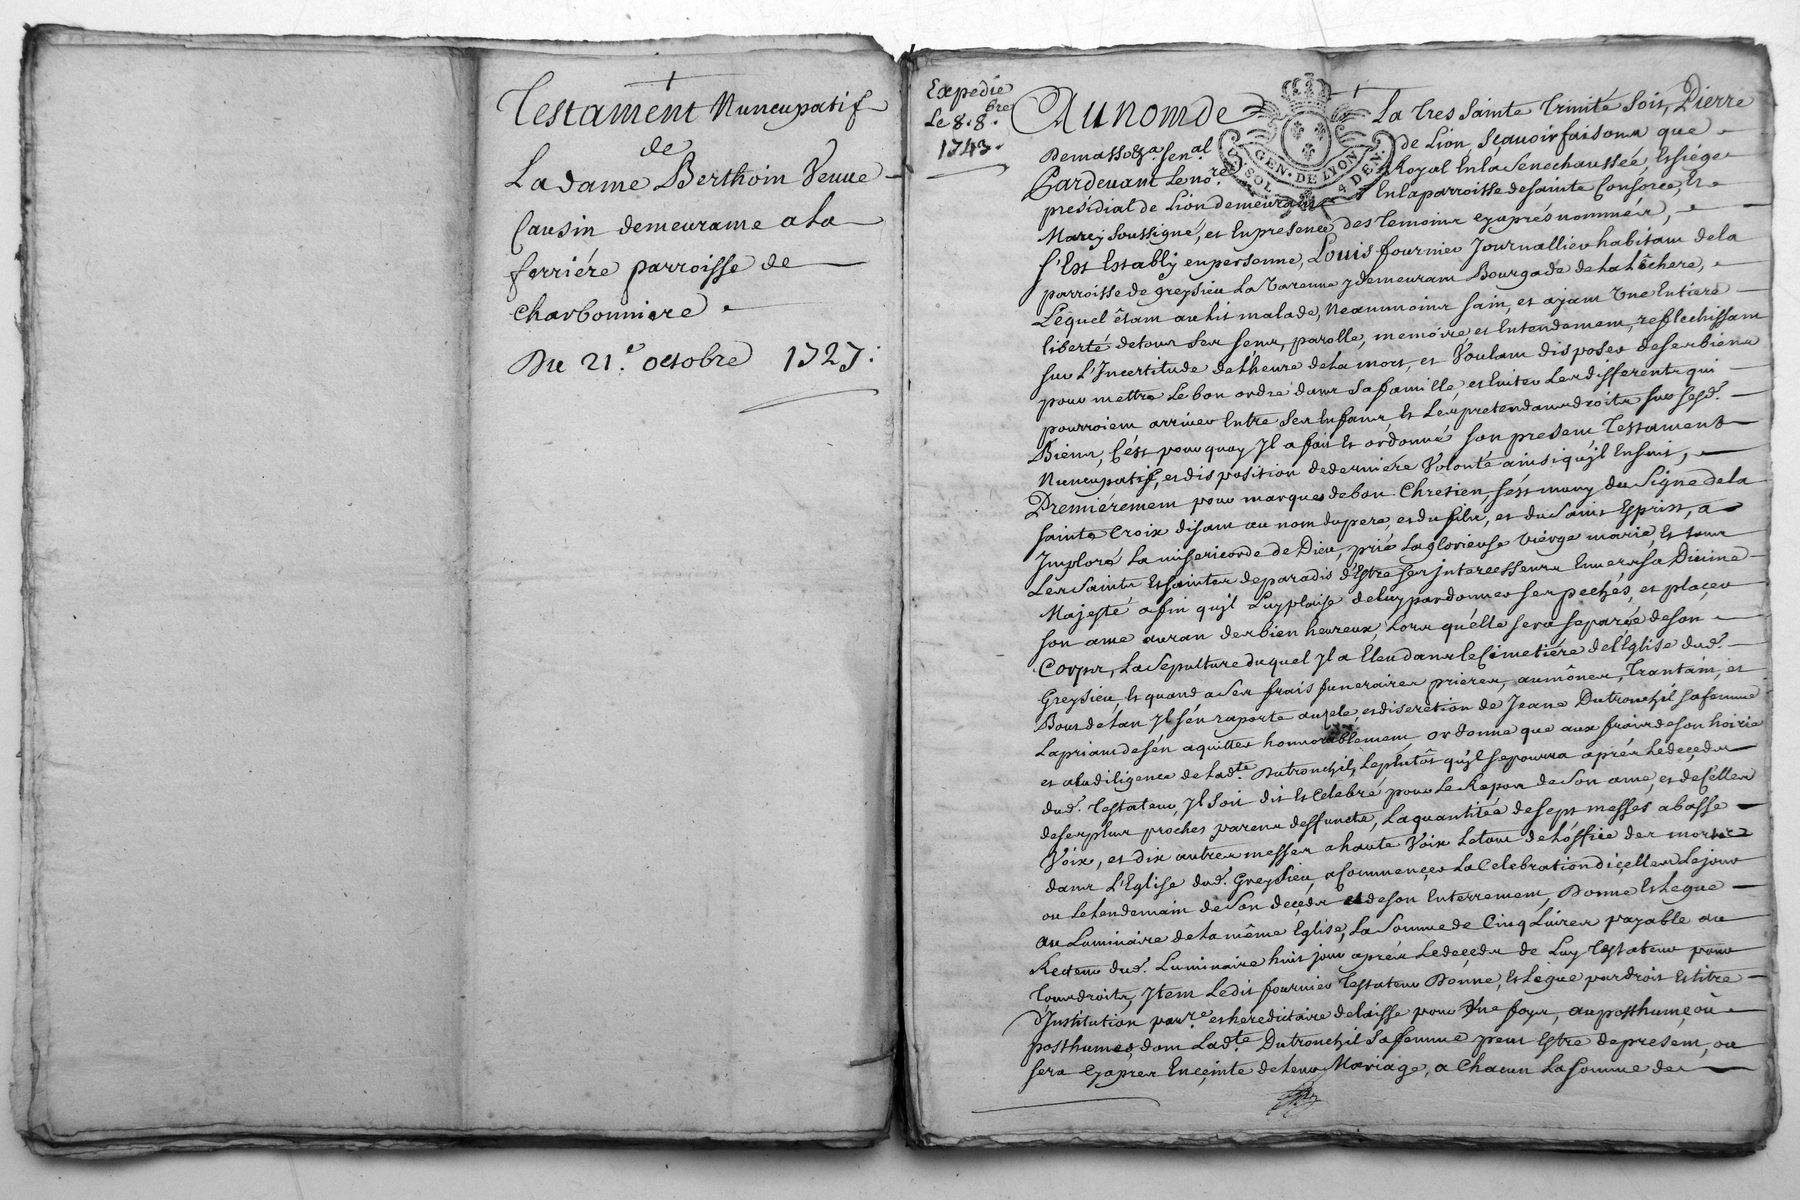 Testament Nuncupatif
de
La dame Berthoin Veuve
Causin demeurante a la
ferriére parroisse de
Charbonniere
Du 21.e octobre 1727.
Expedié
Le 8. 8.bre
1743.
Au nom de La tres sainte trinité soit, Pierre
Demasso Sen.al de Lion, sçauoir faisons que
Pardeuant Le no.re Royal En la Senechaussée Et siége
presidial de Lion demeurant En la parroisse de sainte Consorce, Et
Marcy soussigné, et En presence des temoins cy aprés nommés,
s'Est Estably en personne, Louis fournier Journallier habitant de la
parroisse de greysieu La Varenne y demeurant Bourgade de La Lêchere,
Lequel êtant au Lit malade, Neanmoins sain, et ajant Vne Entiere
liberté de tous Ses Sens, parolle, memoire et Entendement, reflechissant
sur L'Incertitude de L'heure de La mort, et Voulant disposer de ses biens
pour mettre Le bon ordre dans Sa famille, et Euiter Les differents qui
pourroient arriuer Entre Ses Enfans, Et Les pretendans droits sur sesd.
Biens, C'ést pourquoy Jl a fait Et ordonné son present Testament
Nuncupatif, et disposition de derniére Volonté ainsi qu'jl Ensuit,
Premiérement pour marques de bon Chretien, s'ést muny du Signe de la
sainte Croix disant au nom du pere, et du fils, et du Saint Esprit, a
Imploré La misericorde de Dieu, prié La glorieuse Viérge marie, Et tous
Les Saints Et saintes de paradis d'Estre ses jntercesseurs Enuers sa Diuine
Majesté afin qu'jl Luy plaise de luy pardonner ses pechés, et plaçer
son ame au ran des bien heureux, Lors qu'élle sera separée de son
Corps, La Sepulture duquel Jl a Eleu dans le Cimetiére de l'Eglise dud.
Greysieu, Et quand a Ses frais funeraires prieres, aumônes, trantain, et
Bout de l'an Jl s'én raporte au zele, et discretion de Jeane Dutronchil sa femme
La priant de s'én aquitter honnorablement ordonne que aux frais de son hoirie
et a la diligence de lad.te Dutronchil, Le plutôt qu'jl se pourra aprés Le deçeds
dud. Testateur, Jl Soit dit Et Celebré pour Le Repos de Son ame, et de Celles
de ses plus proches parens deffuncts, La quantitée de sept messes a basse
Voix, et dix autres messes a haute Voix Le tout de L'office des morts
dans L'Eglise dud. Greysieu, a Commençer La Celebration d'içelles Le jour
ou Le Lendemain de Son deçeds et de son Enterrement, Donne Et Legue
au Luminaire de La même Eglise, La Somme de Cinq Liures payable au
Recteur dud. Luminaire huit jours aprés Le deçeds de Luy Testateur pour
tous droits, Jtem Ledit fournier Testateur Donne, Et Legue par droit Et titre
d'Institution par.re et hereditaire delaisse pour Vne foys, au posthume, où
posthumes, dont Lad.te Dutronchil Sa femme peut Estre de present, ou
sera Cy apres Enceinte de leur Mariage, a Chacun La somme de
GEN. DE LYON
4 DEN.